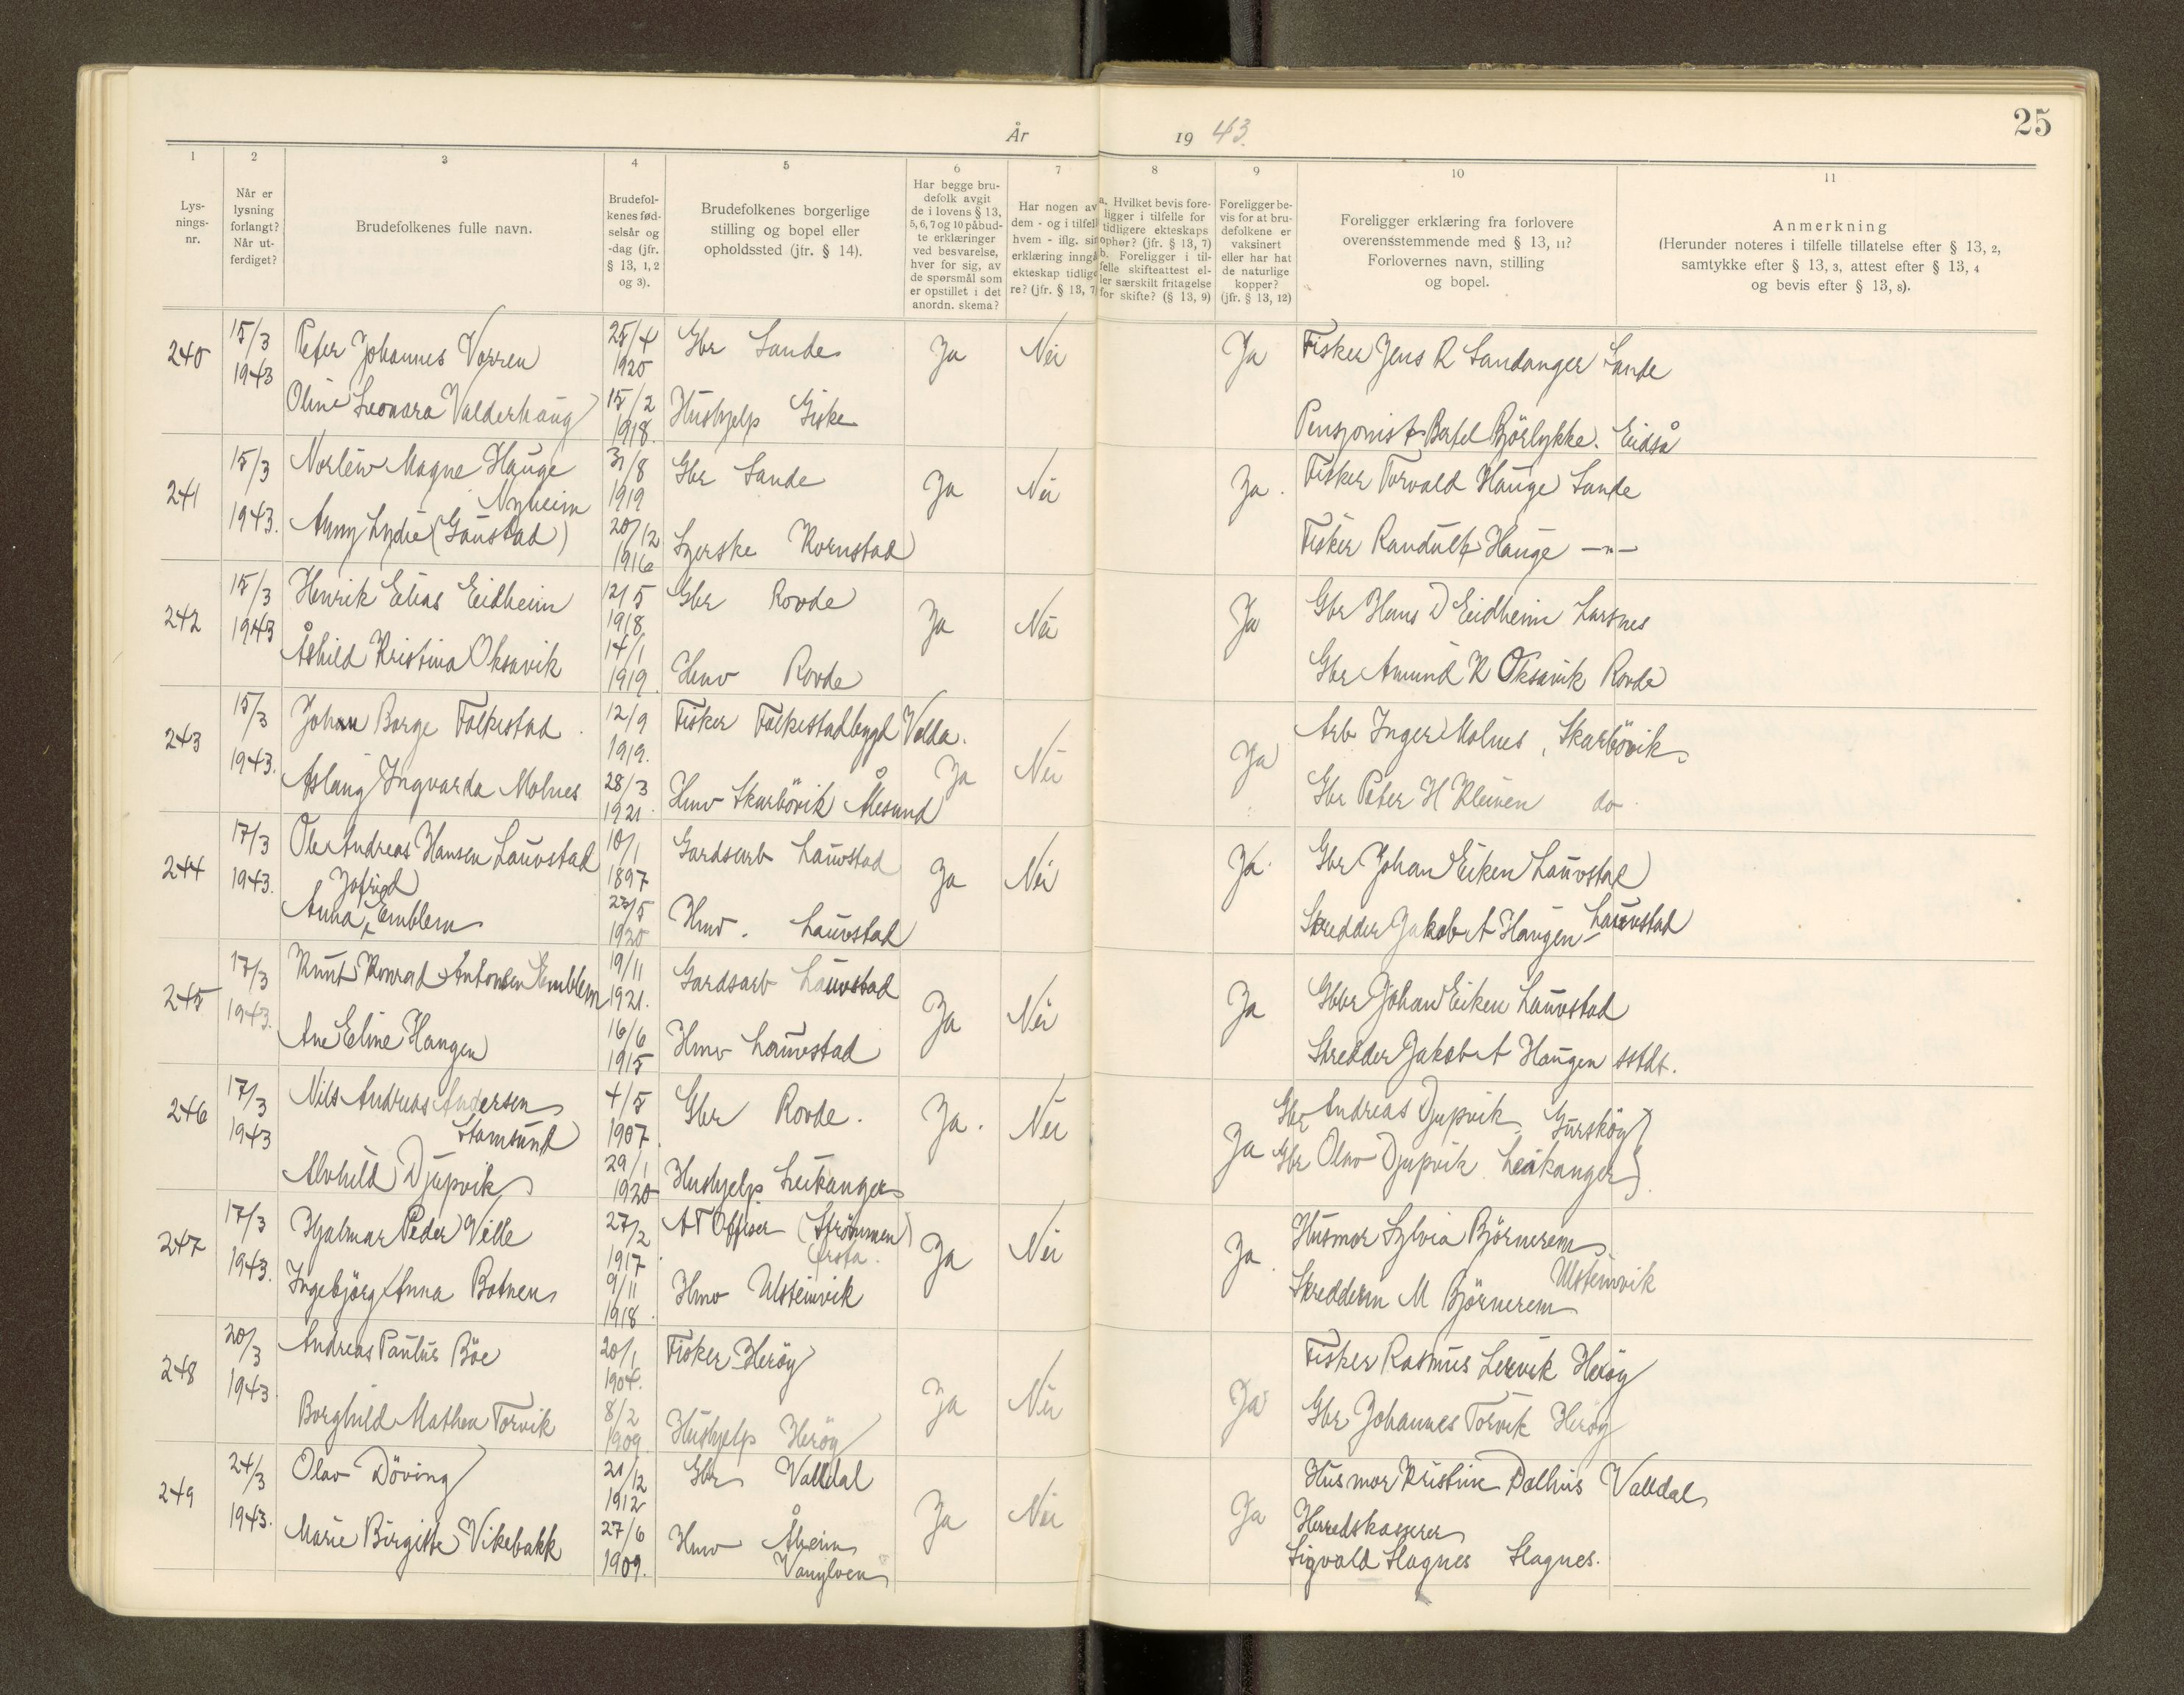 25
År 1943.
1 2 3 4 5 6 7 8 9 10 11
Lys-
nings-
nr.
Når er
lysning
forlangt?
Når ut-
ferdiget?
Brudefolkenes fulle navn.
Brudefol-
kenes fød-
selsår og
-dag (jfr.
§ 13, 1, 2
og 3).
Brudefolkenes borgerlige
stilling og bopel eller
opholdssted (jfr. § 14).
Har begge bru-
defolk avgit
de i lovens § 13,
5, 6, 7 og 10 påbud-
te erklæringer
ved besvarelse,
hver for sig, av
de spørsmål som
er opstillet i det
anordn. skema?
Har nogen av
dem - og i tilfell
hvem - iflg. sin
erklæring inngå
ekteskap tidlige
re? (jfr. § 13, 7)
a. Hvilket bevis fore-
ligger i tilfelle for
tidligere ekteskaps
ophør? (jfr. § 13, 7)
b. Foreligger i til-
felle skifteattest el-
ler særskilt fritagelse
for skifte? (§ 13, 9)
Foreligger be-
vis for at bru-
defolkene er
vaksinert
eller har hat
de naturlige
kopper?
(jfr. § 13, 12)
Foreligger erklæring fra forlovere
overensstemmende med § 13, 11?
Forlovernes navn, stilling
og bopel.
Anmerkning
(Herunder noteres i tilfelle tillatelse efter § 13, 2,
samtykke efter § 13, 3, attest efter § 13, 4
og bevis efter § 13, 8).
240 15/3 1943 Peter Johannes Vorren 25/4 1920 Gbr Sande Ja Nei Ja Fisker Jens R Sandanger Sande
Oline Leonora Valderhaug 15/2 1918. Hushjelp Giske Pensjonist Bertel Bjørlykke. Eidså
241 15/3 1943. Magne Hauge 31/8 1919 Gbr Sande Ja Nei Ja. Fisker Torvald Hauge Sande
Nyheim
Anny Lydie (Gaustad) 20/12 1916 Syerske Kornstad Fisker Randulf Hauge —"—
242 15/3 1943 Henrik Elias Eidheim 12/5 1918 Gbr Rovde Ja Nei Ja Gbr Hans D Eidheim Larsnes
Åshild Kristina Oksavik 14/1 1919. Hmv Rovde Gbr Amund K Oksavik Rovde
243 15/3 1943. Johan Borge Folkestad 12/9 1919. Fisker Folkestadbygd Volda. Ja Nei Ja Arb Inger Molnes, Skarbövik
Aslaug Ingvarda Molnes 28/3 1921. Hmv Skarbövik Ålesund Gbr Peter H Kleiven do
244 17/3 1943. Ole Andreas Hansen Lauvstad 10/1 1897 Gardsarb Lauvstad Ja Nei Ja Gbr Johan Eiken Lauvstad
Jofrid
Anna Emblem 23/5 1920 Hmv. Lauvstad Skredder Jakob A Haugen Lauvstad
245 17/3 1943. Knut Konrad Antonsen Emblem 19/11 1921. Gardsarb Lauvstad Ja Nei Ja Gbr Johan Eiken Lauvstad
Ane Eline Haugen 16/6 1915 Hmv Lauvstad Skredder Jakob A Haugen sstds.
246 17/3 1943 Nils Andreas Andersen 4/5 1907. Gbr Rovde. Ja. Nei Ja Gbr Andreas Djupvik, Gurskøy
Stamsund
Alvhild Djupvik 29/1 1920 Hushjelp Leikanger Gbr Olav Djupvik Leikanger
247 17/3 1943. Hjalmar Peder Velle 27/2 1917. AT Offiser (Strömmen) Ja Nei Ja. Husmor Sylvia Björnerem
Ørsta.
Ulsteinvik
Ingebjørg Anna Botnen 9/11 1918 Hmv Ulsteinvik Skredderm M Björnerem
248 20/3 1943 Andreas Paulus Böe 20/1 1904. Fisker Herøy Ja Nei Ja Fisker Rasmus Lervik Herøy
Borghild Mathea Torvik 8/2 1909 Hushjelp Herøy Gbr Johannes Torvik Herøy
249 24/3 1943. Olav Döving 21/12 1912 Gbr Valldal Ja Nei Ja Husmor Kristine Dalhus Valldal
Marie Birgitte Vikebakk 27/6 1909. Hmv Åheim Herredskasserer
Vanylven Sigvald Slagnes Slagnes.